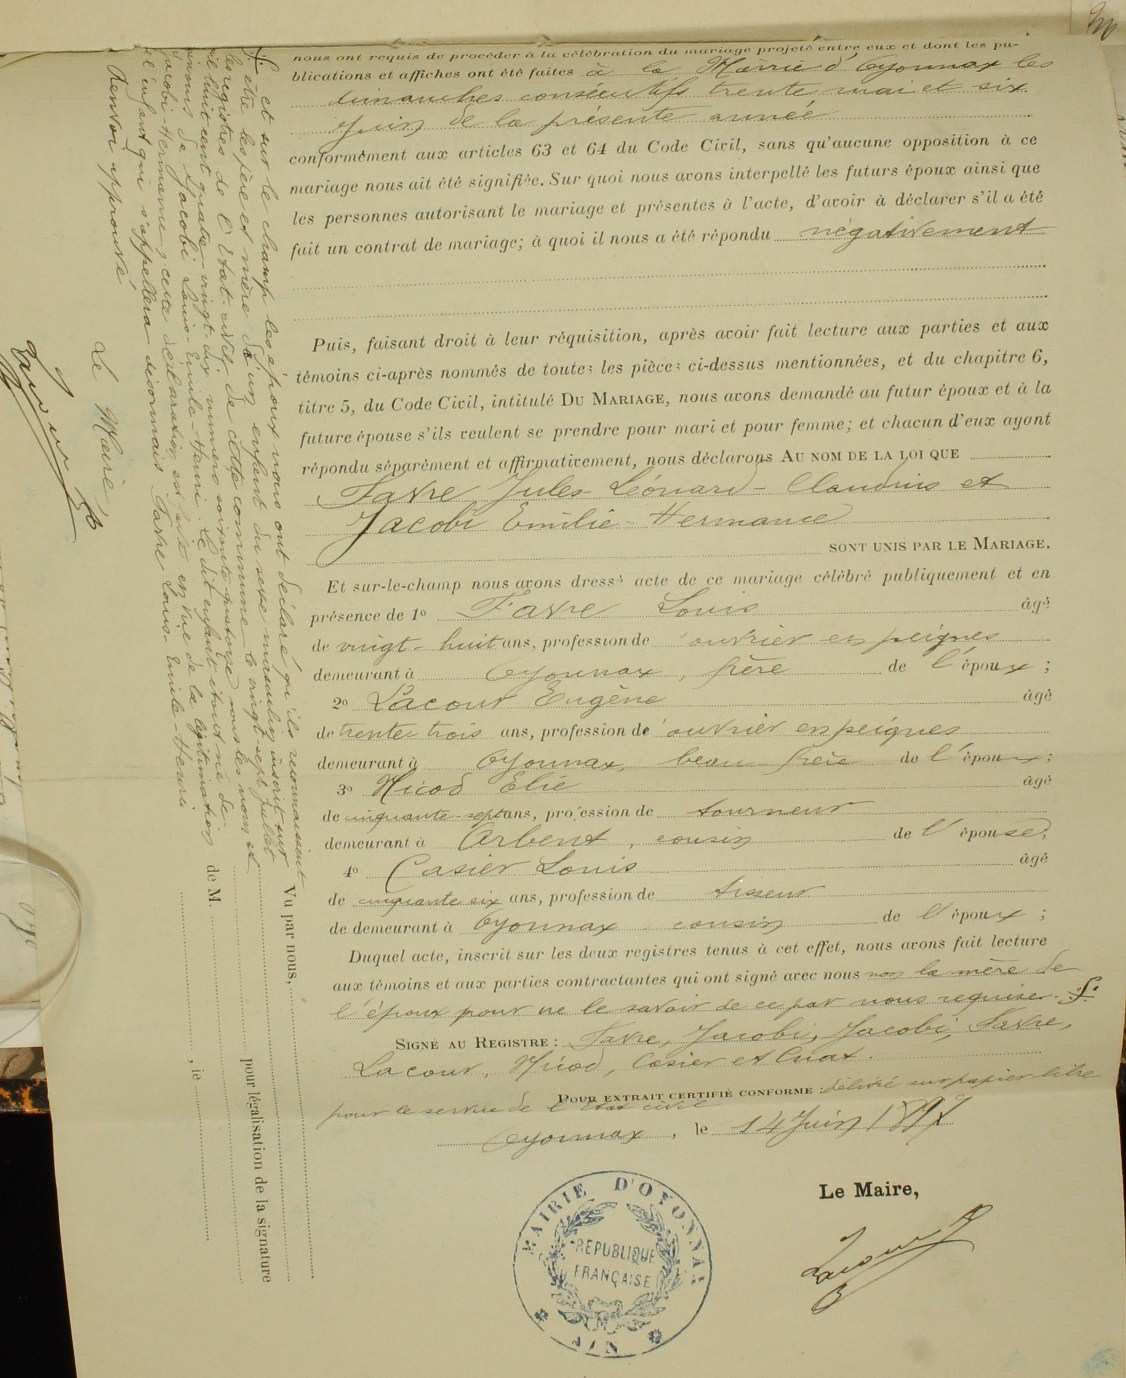 nous ont requis de procéder à la célébration du mariage projeté entre eux et dont les pu-
blications et affiches ont été faites à la Mairie d'Oyonnax les
dimanches consécutifs trente mai et six
Juin de la présente année
conformément aux articles 63 et 64 du Code Civil, sans qu'aucune opposition à ce
mariage nous ait été signifiée. Sur quoi nous avons interpellé les futurs époux ainsi que
les personnes autorisant le mariage et présentes à l'acte, d'avoir à déclarer s'il a été
fait un contrat de mariage; à quoi il nous a été répondu négativement
Puis, faisant droit à leur réquisition, après avoir fait lecture aux parties et aux
témoins ci-après nommés de toutes les pièces ci-dessus mentionnées, et du chapitre 6,
titre 5, du Code Civil, intitulé DU MARIAGE, nous avons demandé au futur époux et à la
future épouse s'ils veulent se prendre pour mari et pour femme; et chacun d'eux ayant
répondu séparément et affirmativement, nous déclarons AU NOM DE LA LOI QUE
Favre, Jules-Léonard-Claudius et
Jacobi Emilie-Hermance
SONT UNIS PAR LE MARIAGE.
Et sur-le-champ nous avons dressé acte de ce mariage célébré publiquement et en
présence de 1º Favre Louis âgé
de vingt-huit ans, profession de ouvrier en peignes
demeurant à Oyonnax, frère de l'époux;
2º Lacour Eugène âgé
de trente trois ans, profession de ouvrier en peignes
demeurant à Oyonnax, beau frère de l'époux;
3º Nicod Elie âgé
de cinquante-sept ans, profession de tourneur
demeurant à Arbent, cousin de l'épouse,
4º Casier Louis âgé
de cinquante six ans, profession de tisseur
de demeurant à Oyonnax cousin de l'époux;
Duquel acte, inscrit sur les deux registres tenus à cet effet, nous avons fait lecture
aux témoins et aux parties contractantes qui ont signé avec nous non la mère de
l'époux pour ne le savoir de ce par nous requise.
SIGNÉ AU REGISTRE: Favre, Jacobi, Jacobi, Favre,
Lacour, Nicod, Casier et
POUR EXTRAIT CERTIFIÉ CONFORME: délivré sur papier libre
pour le service de l'Etat civil
Oyonnax, le 14 Juin 1897
Le Maire,
MAIRIE D'OYONNAX
RÉPUBLIQUE
FRANÇAISE
AIN
et sur le champ les époux nous ont déclaré qu'ils reconnaissent
être les père et mère d'un enfant du sexe masculin inscrit sur
les registres de l'Etat-civil de cette commune le vingt-sept Juillet
mil huit cent quatre-vingt-dix, numéro soixante quatorze sous les noms et
prénoms de Jacobi Louis-Emile-Henri le dit enfant étant né de
Jacobi Hermance, cette déclaration est faite en vue de la légitimation
de l'enfant qui s'appellera désormais Favre Louis-Emile-Henri
Renvoi approuvé
Le Maire
Vu par nous,
pour légalisation de la signature
de M.
, le